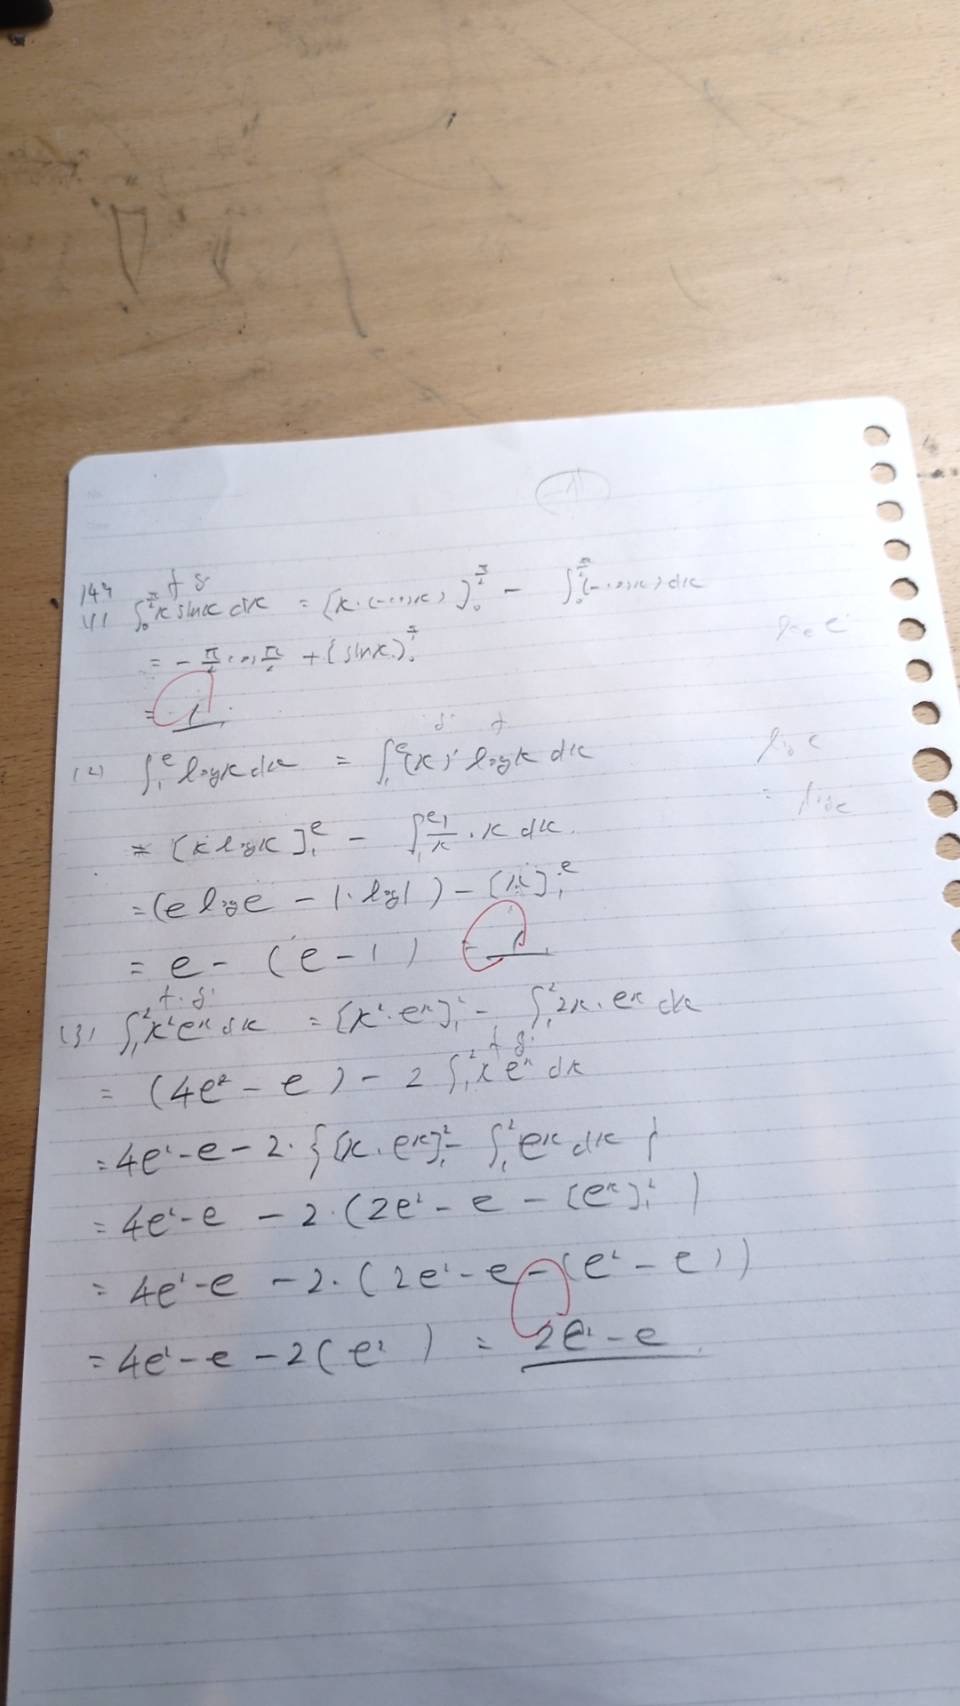 149 f g'
(1) ∫₀^{π/2} x sinx dx = [x·(-cosx)]₀^{π/2} - ∫₀^{π/2} (-cosx) dx
= -π/2 cos π/2 + [sinx]₀^{π/2}
= 1
g' f
(2) ∫₁^e logx dx = ∫₁^e (x)' logx dx
= [x logx]₁^e - ∫₁^e 1/x · x dx
= (e loge - 1·log1) - [x]₁^e
= e - (e-1) = 1
f g'
(3) ∫₁² x²eˣ dx = [x²·eˣ]₁² - ∫₁² 2x·eˣ dx
f g'
= (4e² - e) - 2 ∫₁² x eˣ dx
= 4e² - e - 2·{[x·eˣ]₁² - ∫₁² eˣ dx}
= 4e² - e - 2·(2e² - e - [eˣ]₁²)
= 4e² - e - 2·(2e² - e - (e² - e))
= 4e² - e - 2(e²) = 2e² - e